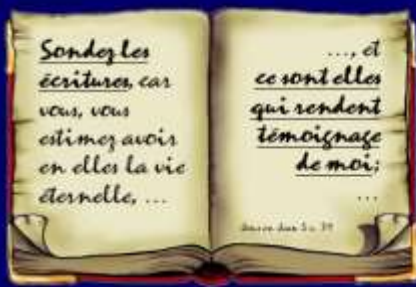 Sondez les
écritures, car
vous, vous
estimez avoir
en elles la vie
éternelle, ...
..., et
ce sont elles
qui rendent
témoignage
de moi;
...
5 v. 39